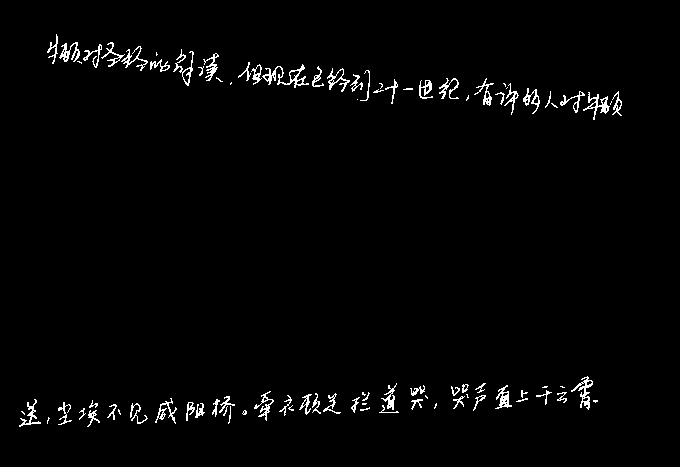 牛顿对圣经的解读,但现在已经到二十一世纪,有许多人对牛顿
送,尘埃不见咸阳桥。牵衣顿足拦道哭,哭声直上干云霄